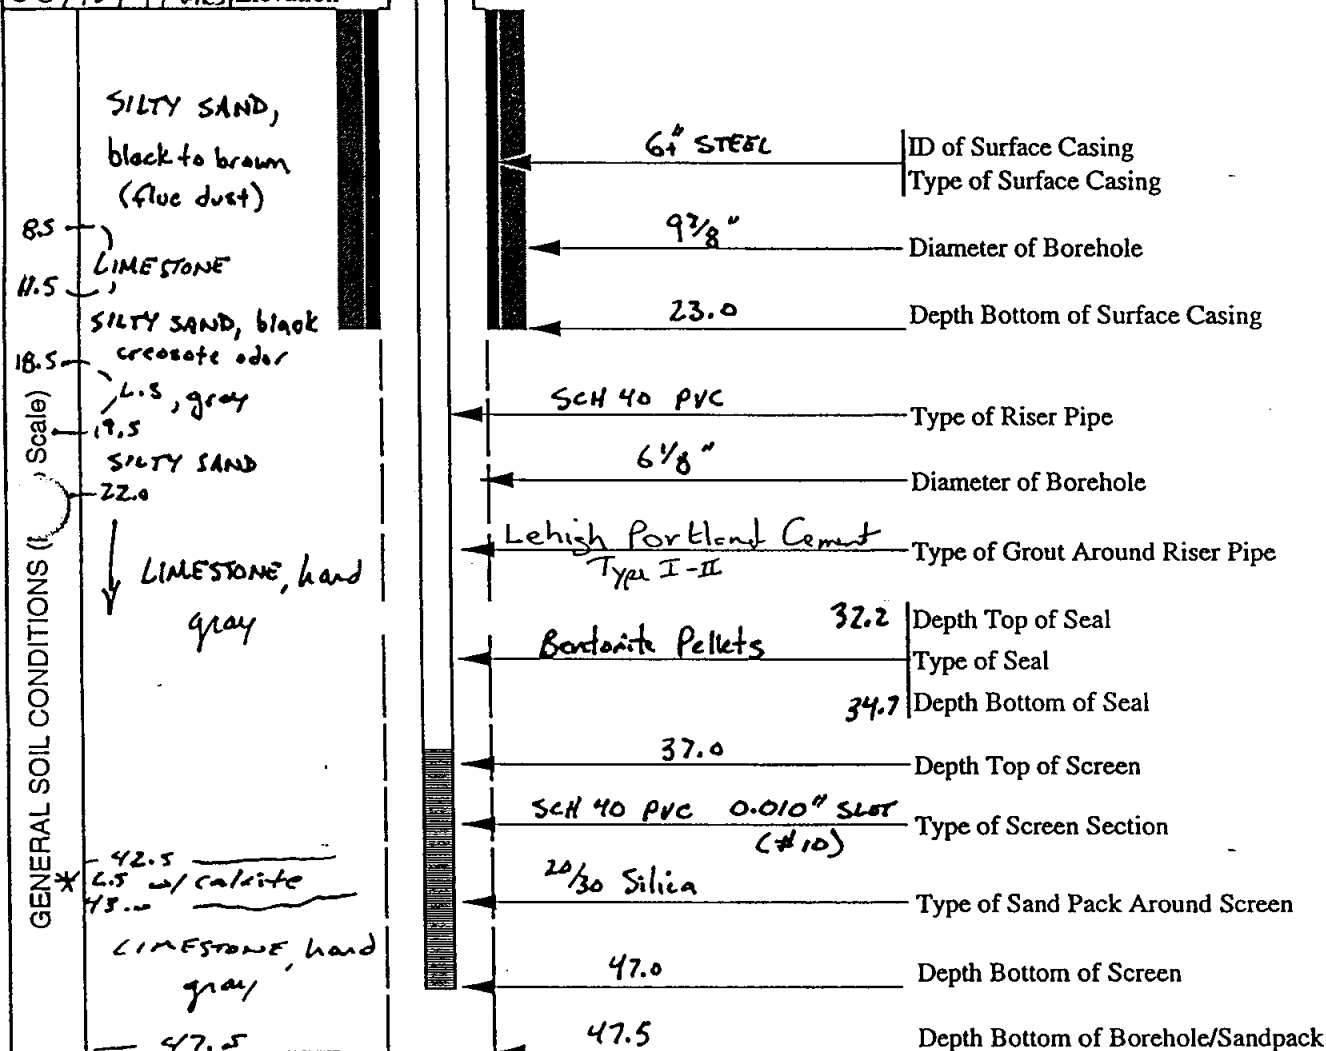 Elevation
SILTY SAND,
black to brown
(flue dust)
8.5
LIMESTONE
11.5
SILTY SAND, black
creosote odor
18.5
L.S, gray
19.5
SILTY SAND
22.0
LIMESTONE, hard
gray
42.5
* L.S w/ calcite
43.0
LIMESTONE, hard
gray
47.5
GENERAL SOIL CONDITIONS
Scale)
6" STEEL
ID of Surface Casing
Type of Surface Casing
9 7/8"
Diameter of Borehole
23.0
Depth Bottom of Surface Casing
SCH 40 PVC
Type of Riser Pipe
6 1/8"
Diameter of Borehole
Lehigh Portland Cement
Type I-II
Type of Grout Around Riser Pipe
32.2 Depth Top of Seal
Bentonite Pellets
Type of Seal
34.7 Depth Bottom of Seal
37.0
Depth Top of Screen
SCH 40 PVC 0.010" SLOT
(#10)
Type of Screen Section
20/30 Silica
Type of Sand Pack Around Screen
47.0
Depth Bottom of Screen
47.5
Depth Bottom of Borehole/Sandpack